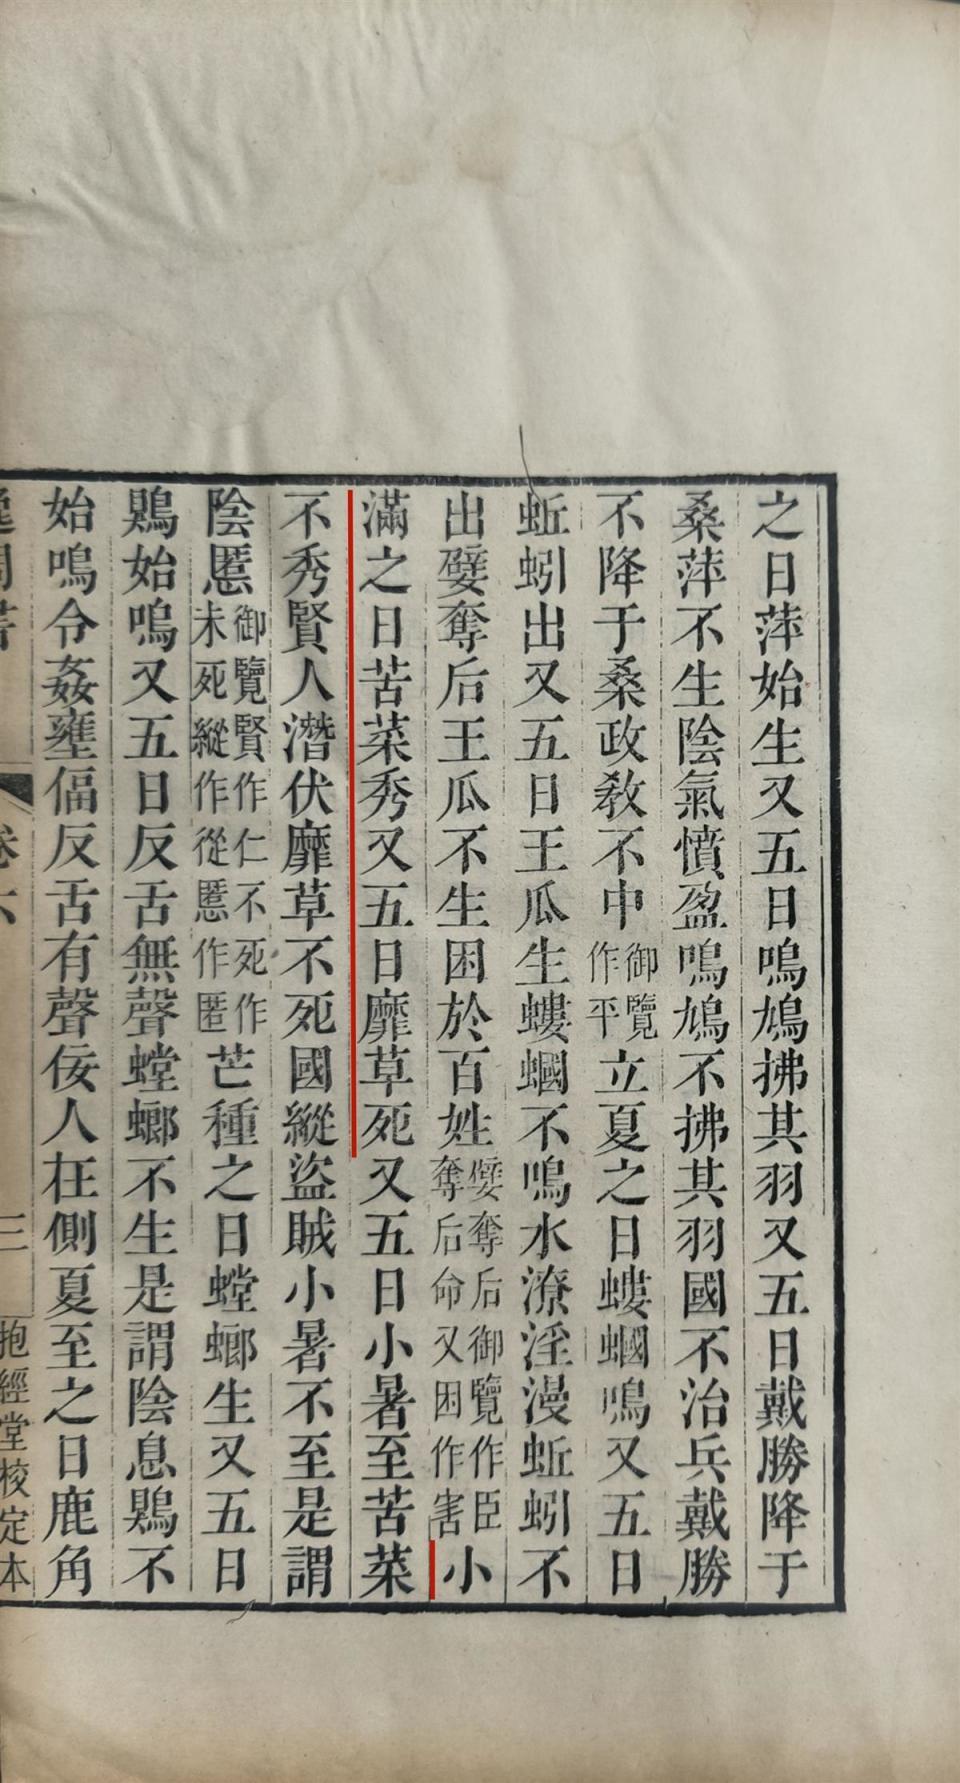 之日萍始生又五日鳴鳩拂其羽又五日戴勝降于
桑萍不生陰氣憤盈鳴鳩不拂其羽國不治兵戴勝
不降于桑政教不中御覽作平立夏之日螻蟈鳴又五日
蚯蚓出又五日王瓜生螻蟈不鳴水潦淫漫蚯蚓不
出嬖奪后王瓜不生困於百姓嬖奪后御覽作臣奪后命又困作害小
滿之日苦菜秀又五日靡草死又五日小暑至苦菜
不秀賢人潛伏靡草不死國縱盜賊小暑不至是謂
陰慝御覽賢作仁不死作未死縱作從慝作匿芒種之日螳螂生又五日
鶪始鳴又五日反舌無聲螳螂不生是謂陰息鶪不
始鳴令姦壅偪反舌有聲佞人在側夏至之日鹿角
逸周書 卷六 三 抱經堂校定本